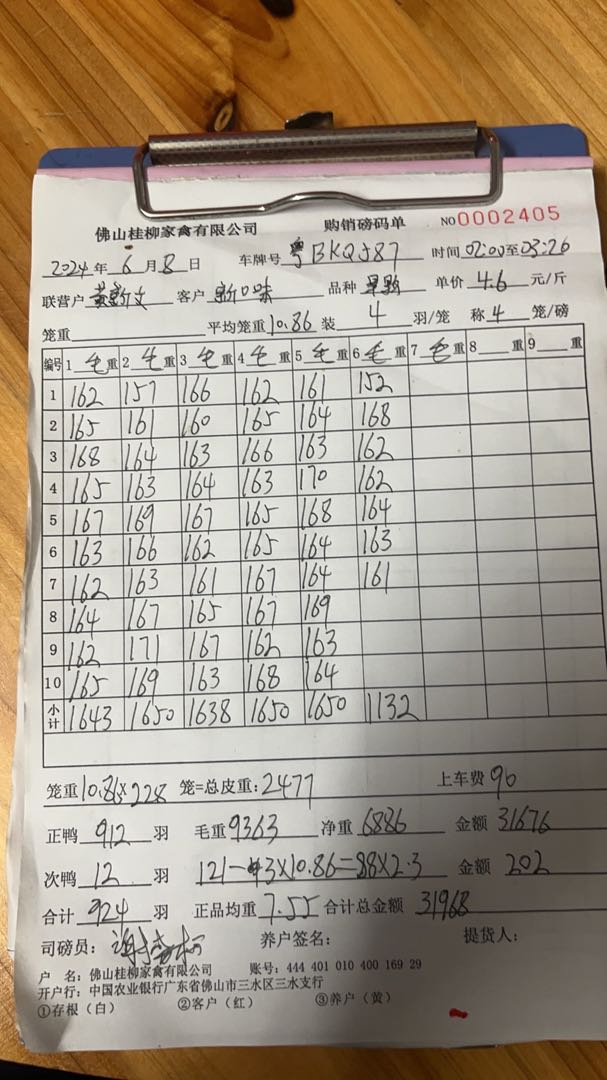 佛山桂柳家禽有限公司 购销磅码单 NO 0002405
2024年6月8日 车牌号 粤BKQJ87 时间 02:00至03:26
联营户 黄新文 客户 新口味 品种 单价 4.6 元/斤
笼重 平均笼重 10.86 装 4 羽/笼 称 4 笼/磅
编号 1 毛 重 2 毛 重 3 毛 重 4 毛 重 5 毛 重 6 毛 重 7 毛 重 8 重 9 重
1 162 157 166 162 161 152
2 165 161 160 165 164 168
3 168 164 163 166 163 162
4 165 163 164 163 170 162
5 167 169 167 165 168 164
6 163 166 162 165 164 163
7 162 163 161 167 164 161
8 164 167 165 167 169
9 162 171 167 162 163
10 165 169 163 168 164
小计 1643 1650 1638 1650 1650 1132
笼重 10.86× 228 笼=总皮重: 2477 上车费 90
正鸭 912 羽 毛重 9363 净重 6886 金额 31676
次鸭 12 羽 121-3×10.86=88×2.3 金额 202
合计 924 羽 正品均重 7.55 合计总金额 31968
司磅员: 养户签名: 提货人:
户 名: 佛山桂柳家禽有限公司 账号: 444 401 010 400 169 29
开户行: 中国农业银行广东省佛山市三水区三水支行
①存根(白) ②客户(红) ③养户(黄)